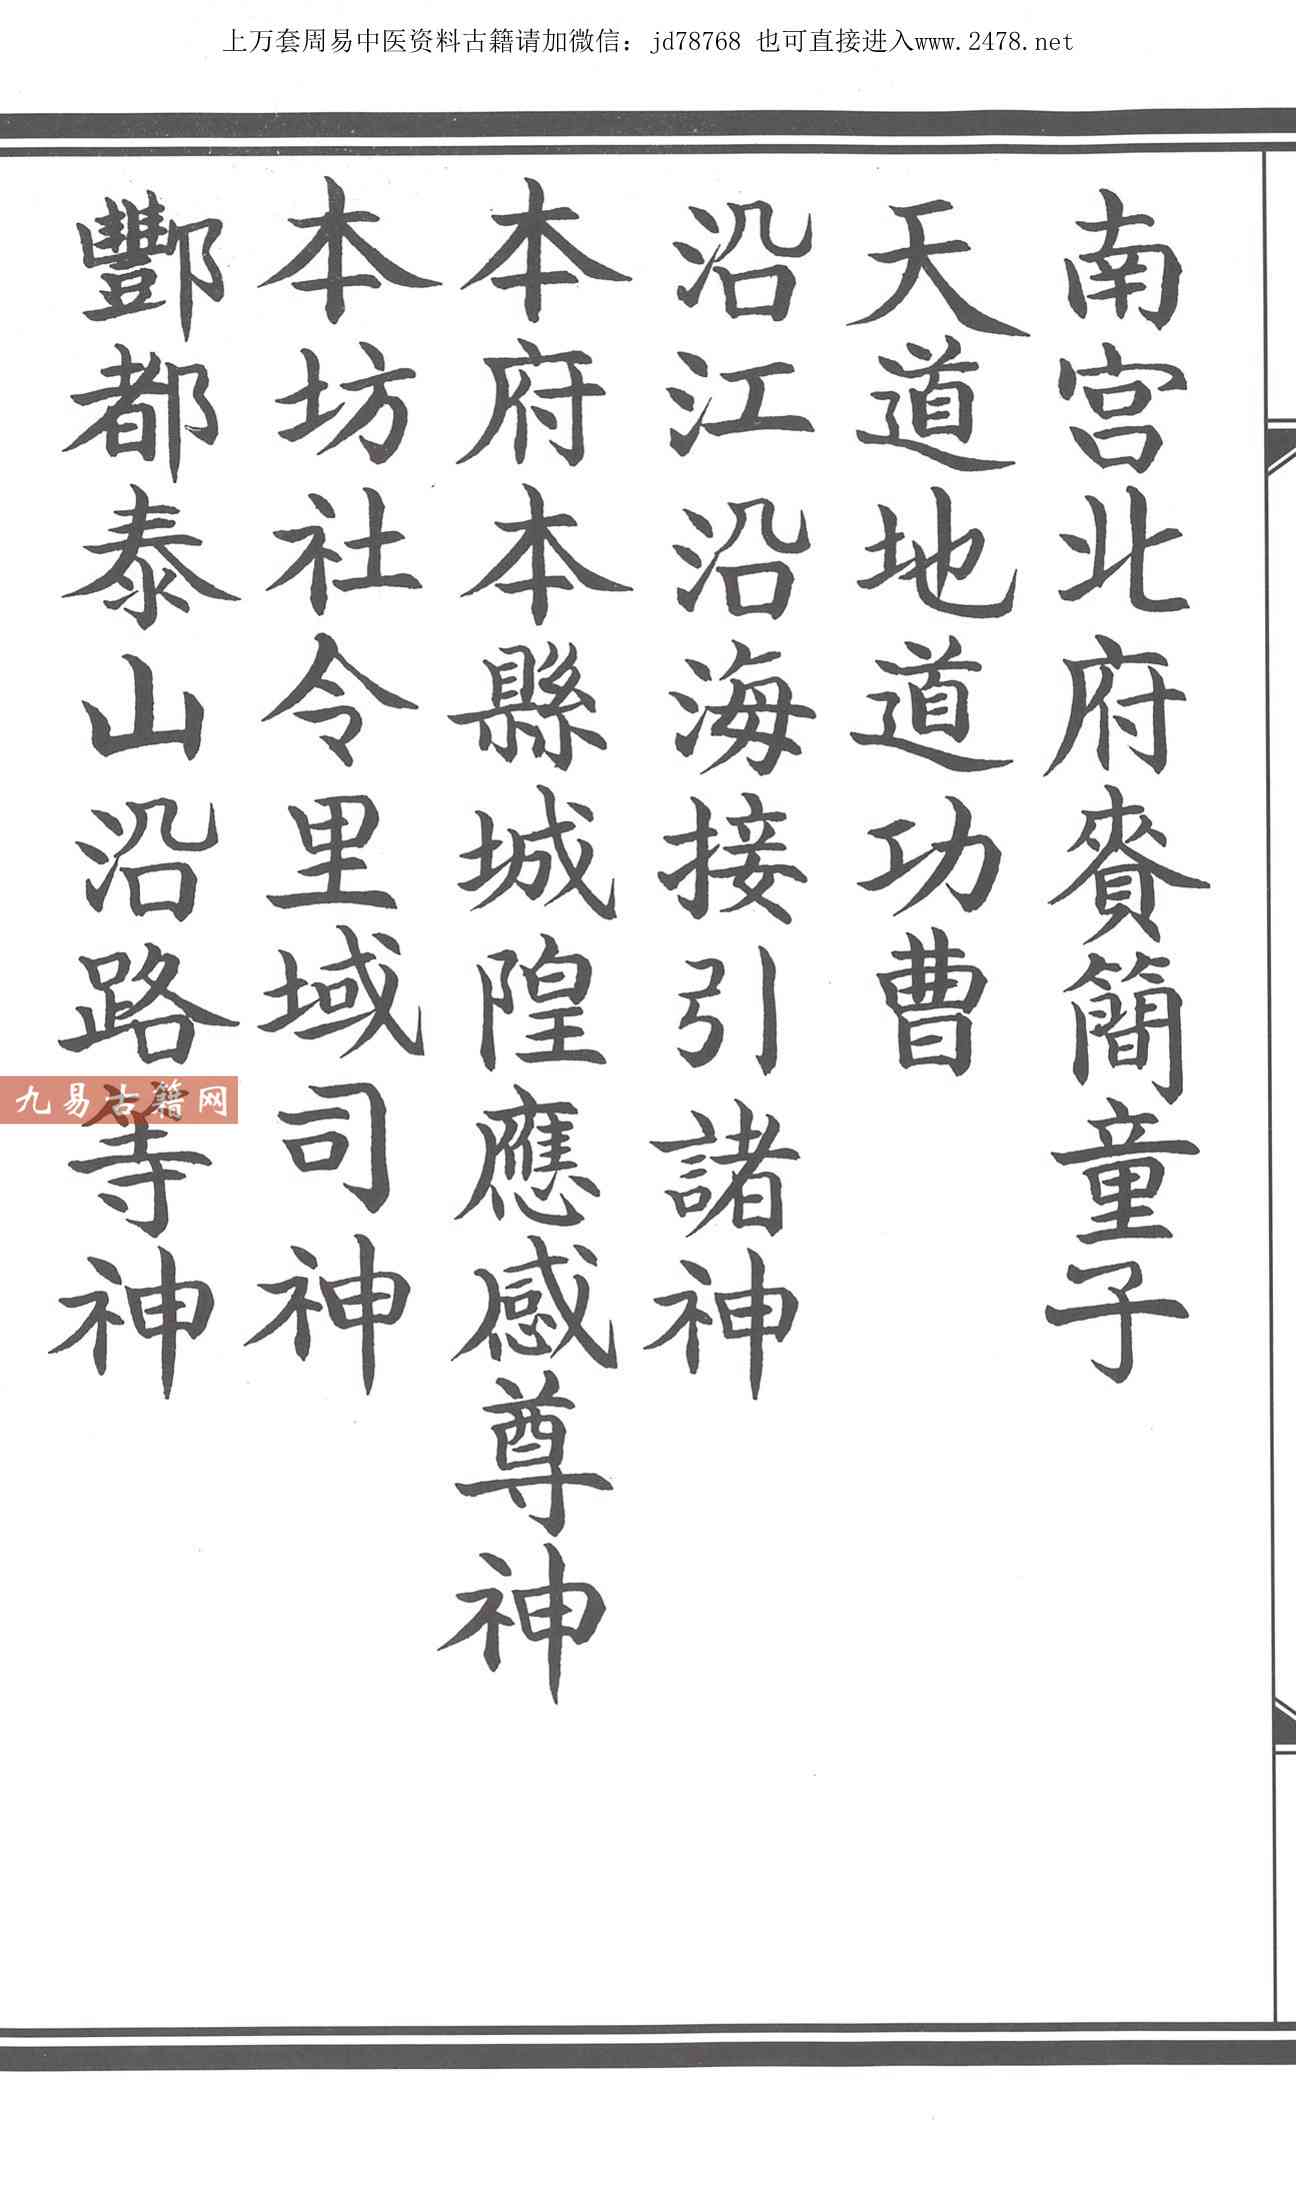 上万套周易中医资料古籍请加微信：jd78768 也可直接进入www.2478.net
南宫北府賫簡童子
天道地道功曹
沿江沿海接引諸神
本府本縣城隍應感尊神
本坊社令里域司神
酆都泰山沿路等神
九易古籍网